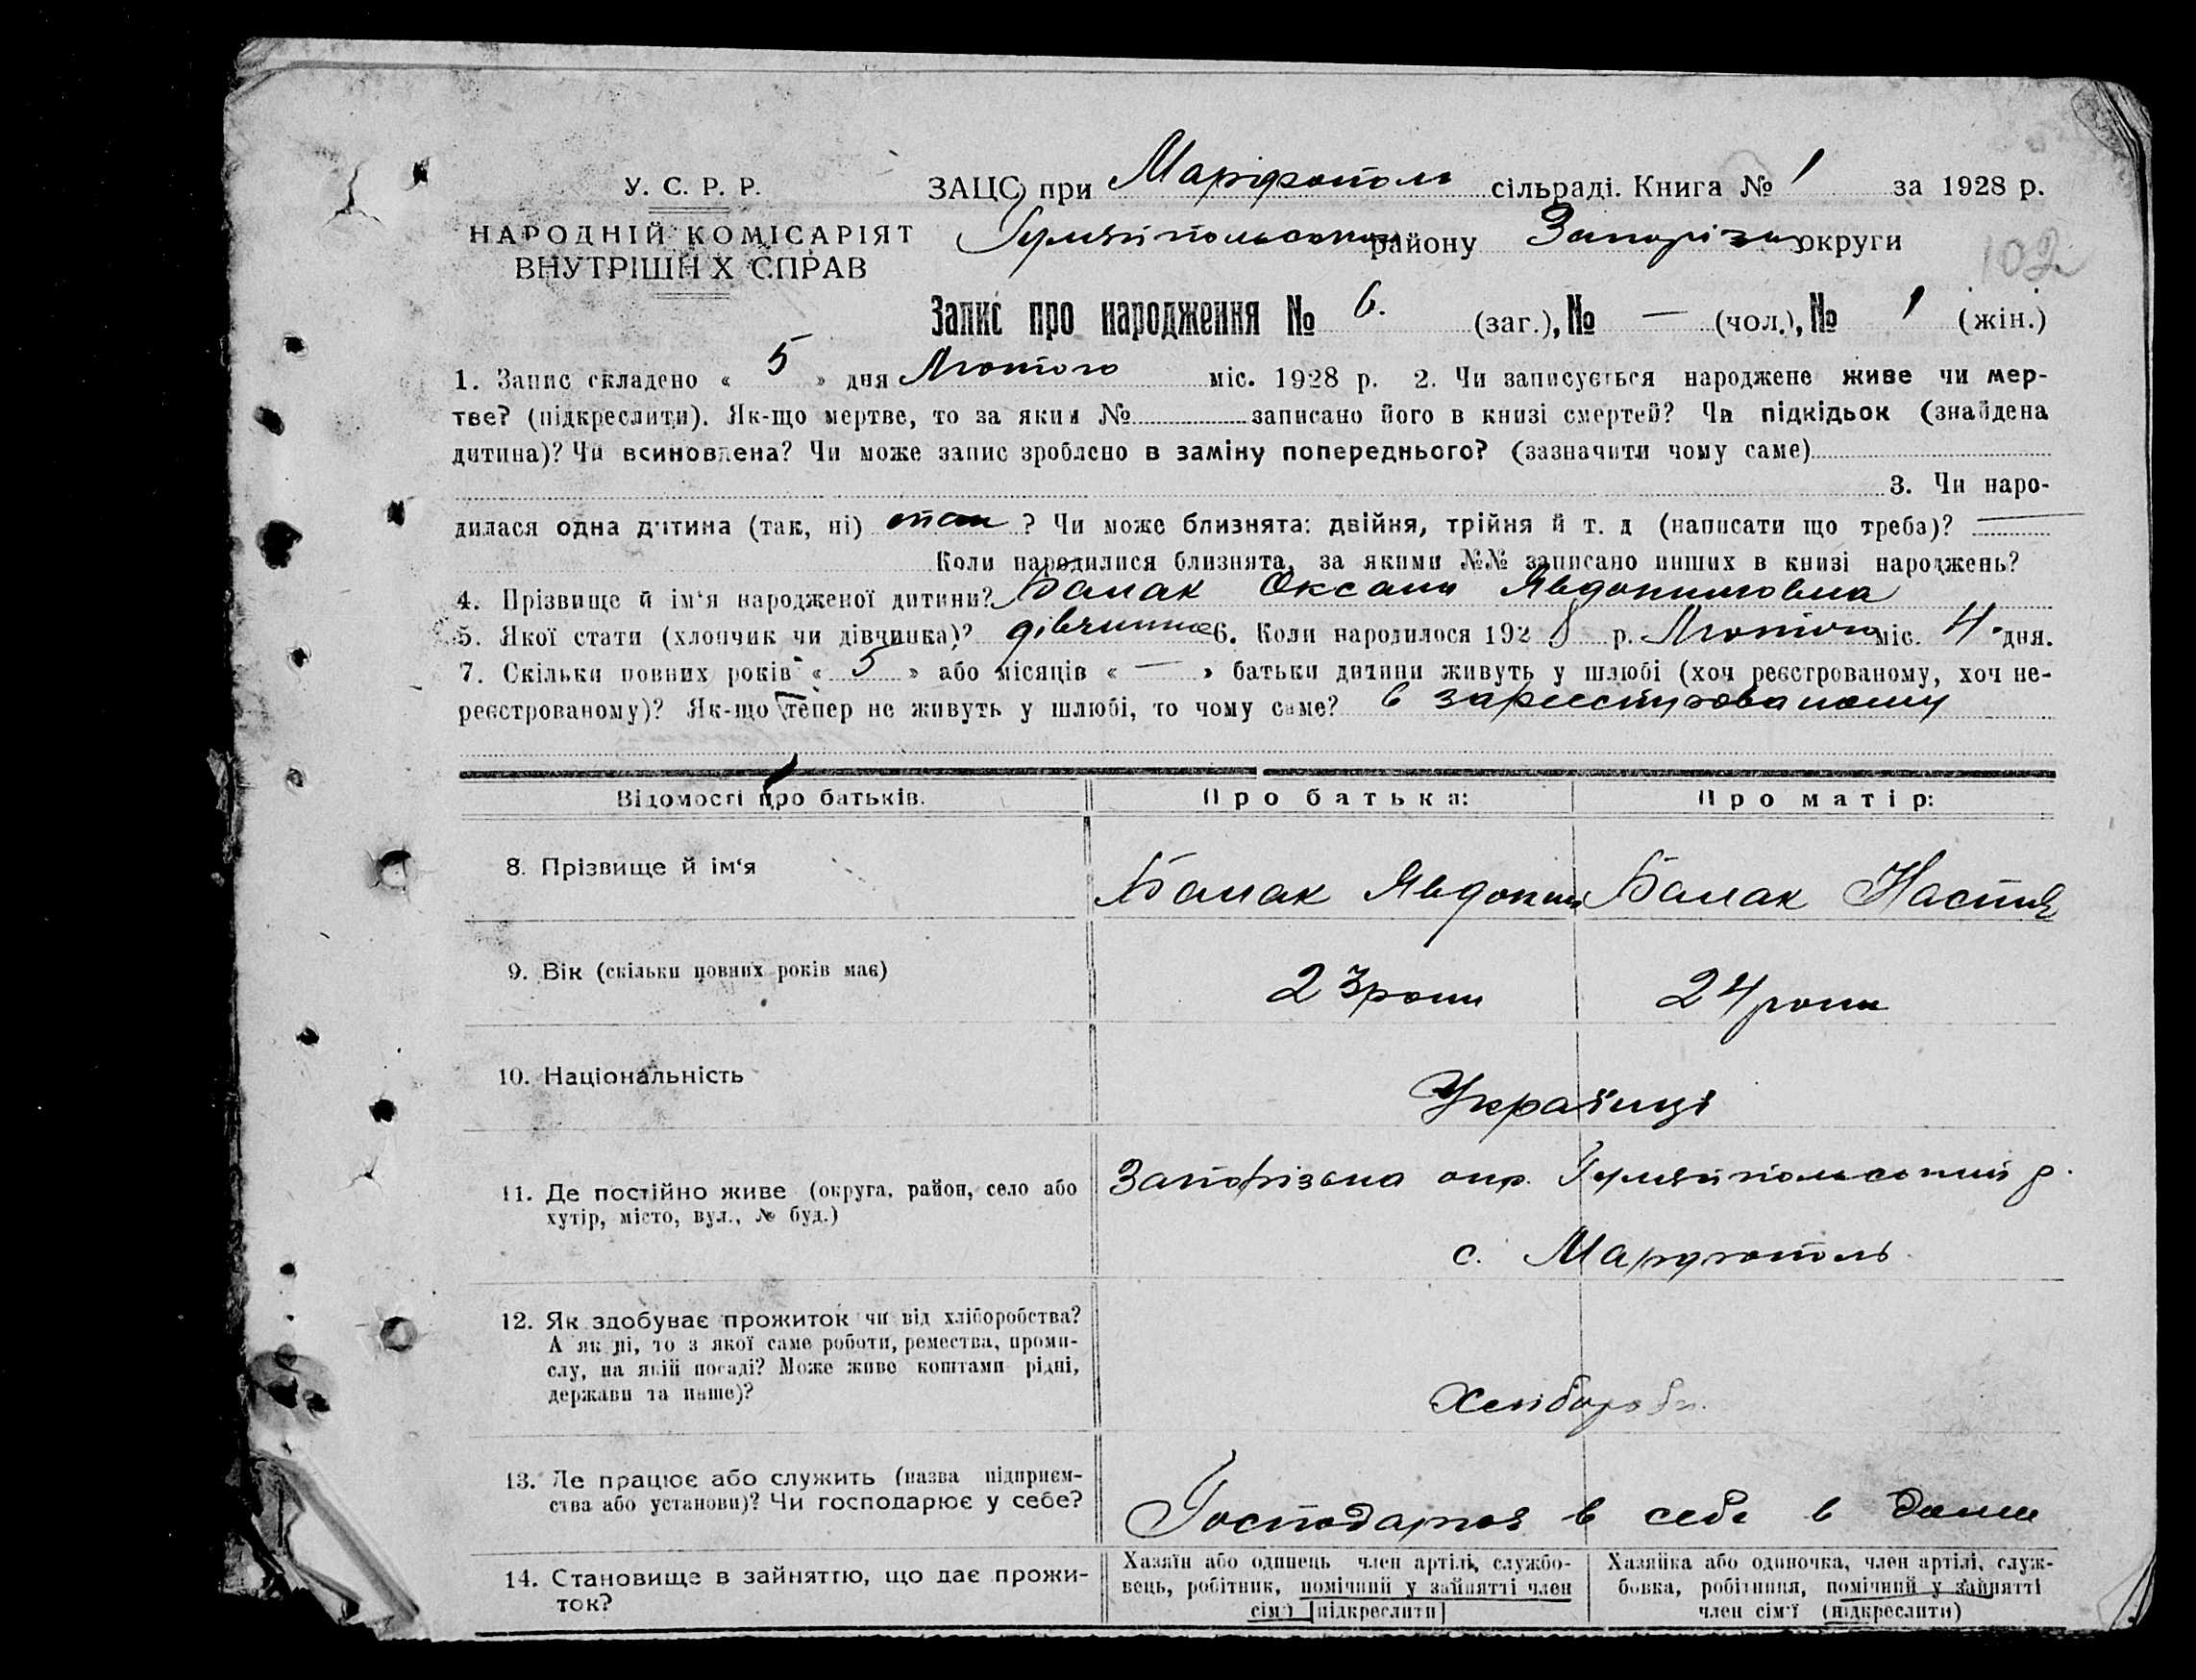 У. С. Р. Р.
НАРОДНІЙ КОМІСАРІЯТ
ВНУТРІШН Х СПРАВ
ЗАЦС при Марфополь сільраді. Книга № 1 за 1928 р.
Гуляйпольського району Запорізької округи
102
Запис про народження № 6. (заг.), № — (чол.), № 1 (жін.)
1. Запис складено « 5 » дня Лютого міс. 1928 р. 2. Чи записується народжене живе чи мер-
тве? (підкреслити). Як-що мертве, то за яким № записано його в книзі смертей? Чи підкідьок (знайдена
дитина)? Чи всиновлена? Чи може запис зроблено в заміну попереднього? (зазначити чому саме)
3. Чи наро-
дилася одна дитина (так, ні) так ? Чи може близнята: двійня, трійня й т. д (написати що треба)? —
Коли народилися близнята, за якими №№ записано инших в книзі народжень?
4. Прізвище й ім‘я народженої дитини? Балак Оксана Явдокимовна
5. Якої стати (хлопчик чи дівчинка)? дівчинка 6. Коли народилося 1928 р. Лютого міс. 4 дня.
7. Скільки повних років « 5 » або місяців « — » батьки дитини живуть у шлюбі (хоч реєстрованому, хоч не-
реєстрованому)? Як-що тепер не живуть у шлюбі, то чому саме? в
Відомості про батьків. Про батька: Про матір:
8. Прізвище й ім‘я Балак Явдоким Балак Настя
9. Вік (скільки повних років має) 23 роки 24 роки
10. Національність Українці
11. Де постійно живе (округа, район, село або
хутір, місто, вул., № буд.)
Запорізька окр. Гуляйпольський р.
с. Марфополь
12. Як здобуває прожиток чи від хліборобства?
А як ні, то з якої саме роботи, ремества, проми-
слу, на якій посаді? Може живе коштами рідні,
держави та инше)?
Хлібороби.
13. Де працює або служить (назва підприєм-
ства або установи)? Чи господарює у себе?
в себе в
14. Становище в зайняттю, що дає прожи-
ток?
Хазяїн або одинець член артілі, службо-
вець, робітник, помічний у зайнятті член
сім‘ї [підкреслити]
Хазяйка або одиночка, член артілі, служ-
бовка, робітниця, помічний у зайнятті
член сім‘ї (підкреслити)